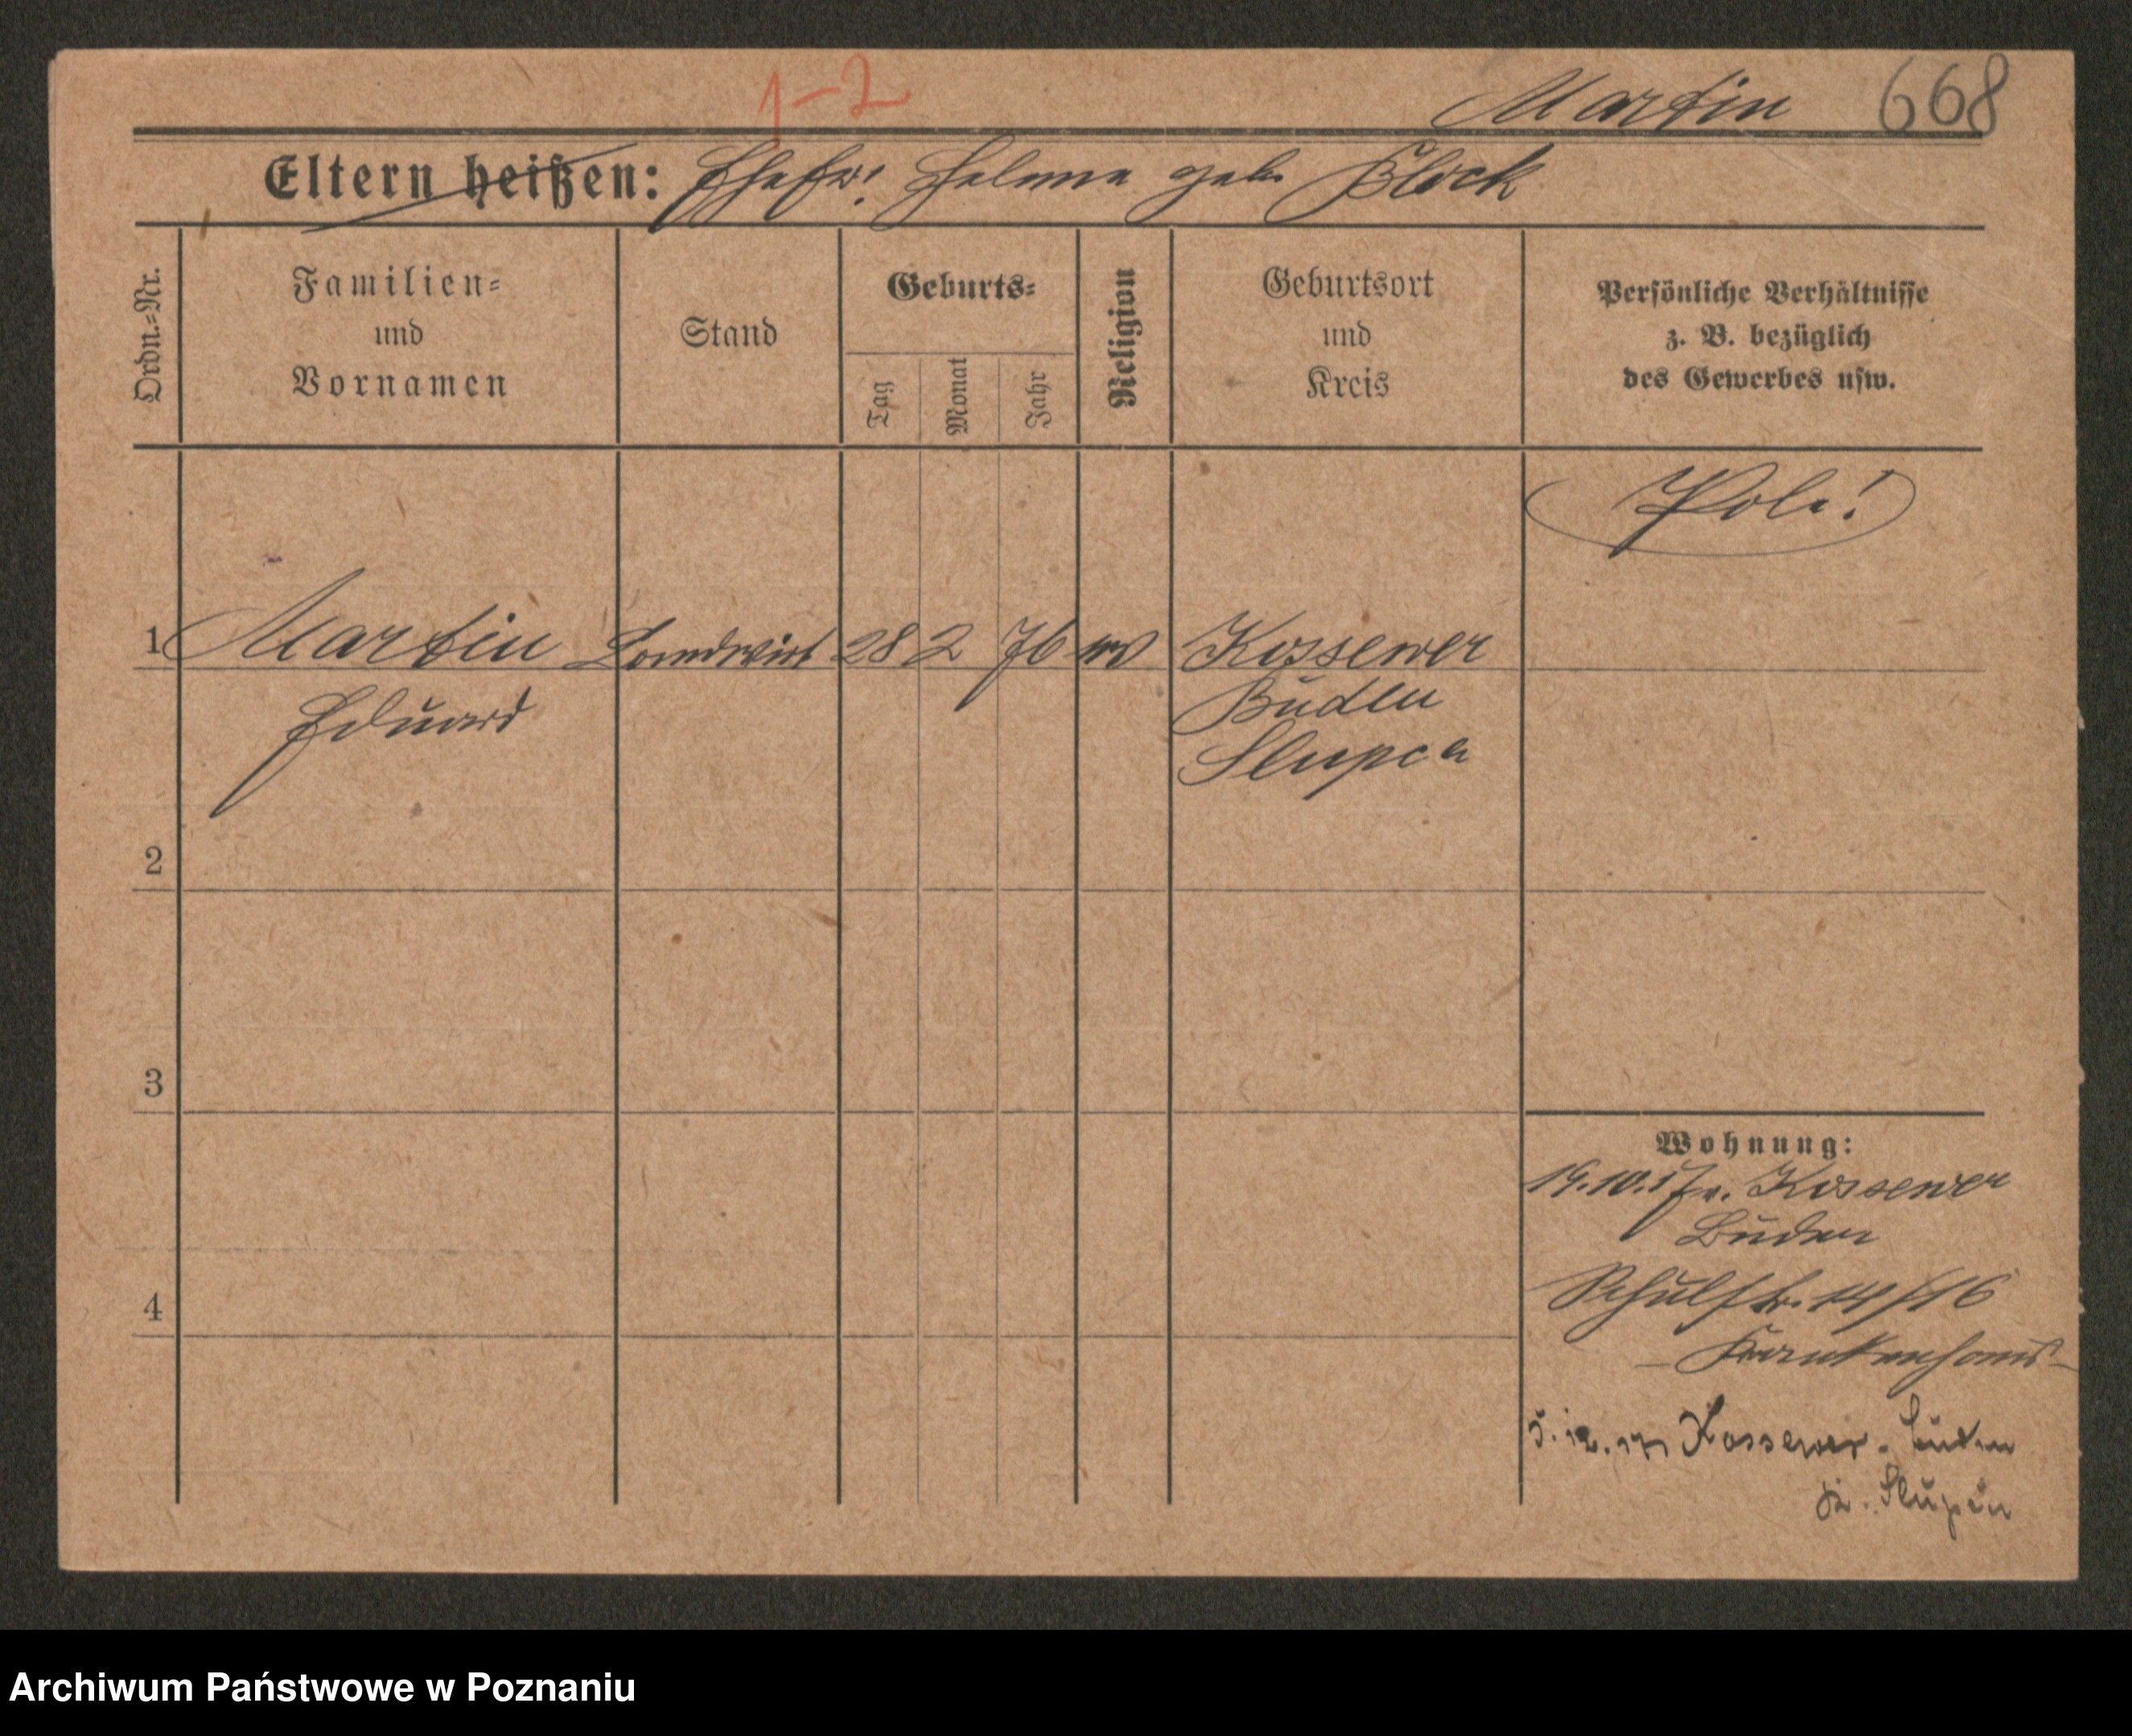 1-2
Martin 668
Eltern heißen: Ehefr! Helene geb. Block
Ordn.=Nr.
Familien=
und
Vornamen
Stand
Geburts=
Tag
Monat
Jahr
Religion
Geburtsort
und
Kreis
Persönliche Verhältnisse
z. B. bezüglich
des Gewerbes usw.
Pole!
1 Martin Landwirt 28 2 76 Kossewer
Eduard Buden
Slupca
2
3
4
Wohnung:
19.10.17 v. Kossewer
Buden
Schulstr. 14/16
- Krankenhaus -
5.12.17 Kossewer-Buden
Kr. Slupca
Archiwum Państwowe w Poznaniu